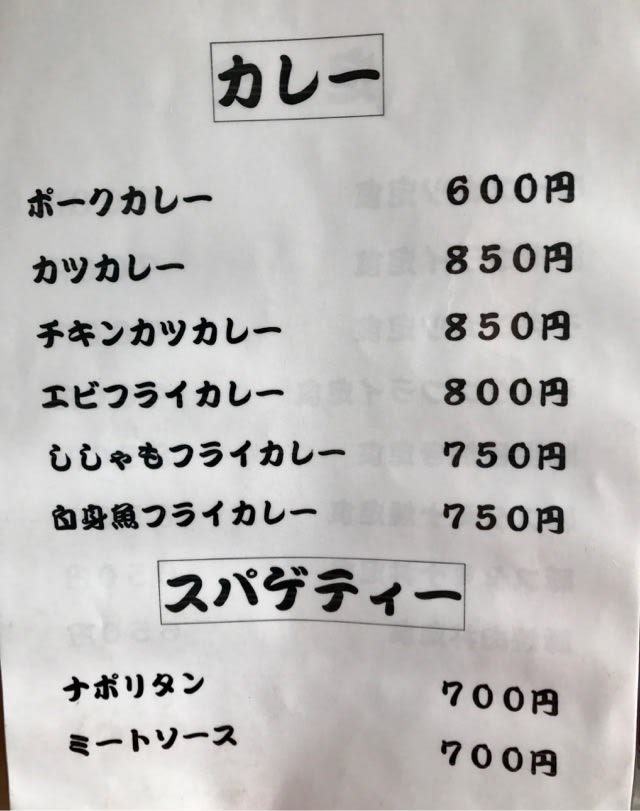 カレー
ポークカレー ６００円
カツカレー ８５０円
チキンカツカレー ８５０円
エビフライカレー ８００円
ししゃもフライカレー ７５０円
白身魚フライカレー ７５０円
スパゲティー
ナポリタン ７００円
ミートソース ７００円